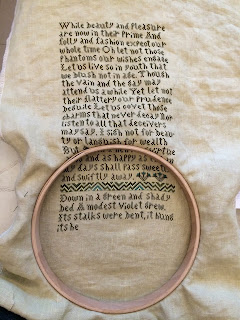 While beauty and pleasure
are now in their prime And
folly and fashion expect our
whole time Oh let not those
Phantoms our wishes engage
Let us live so in youth that
we blush not in age. Though
the vain and the gay may
attend us awhile Yet let not
their flattery our prudence
beguile Let us covet those
charms that never decay Nor
listen to all that deceivers
may say. I sigh not for beauty
or languish for wealth
But
and as happy as
my days shall pass sweetly
and swiftly away.
Down in a green and shady
bed A modest Violet grew,
Its stalks were bent, it hung
its he